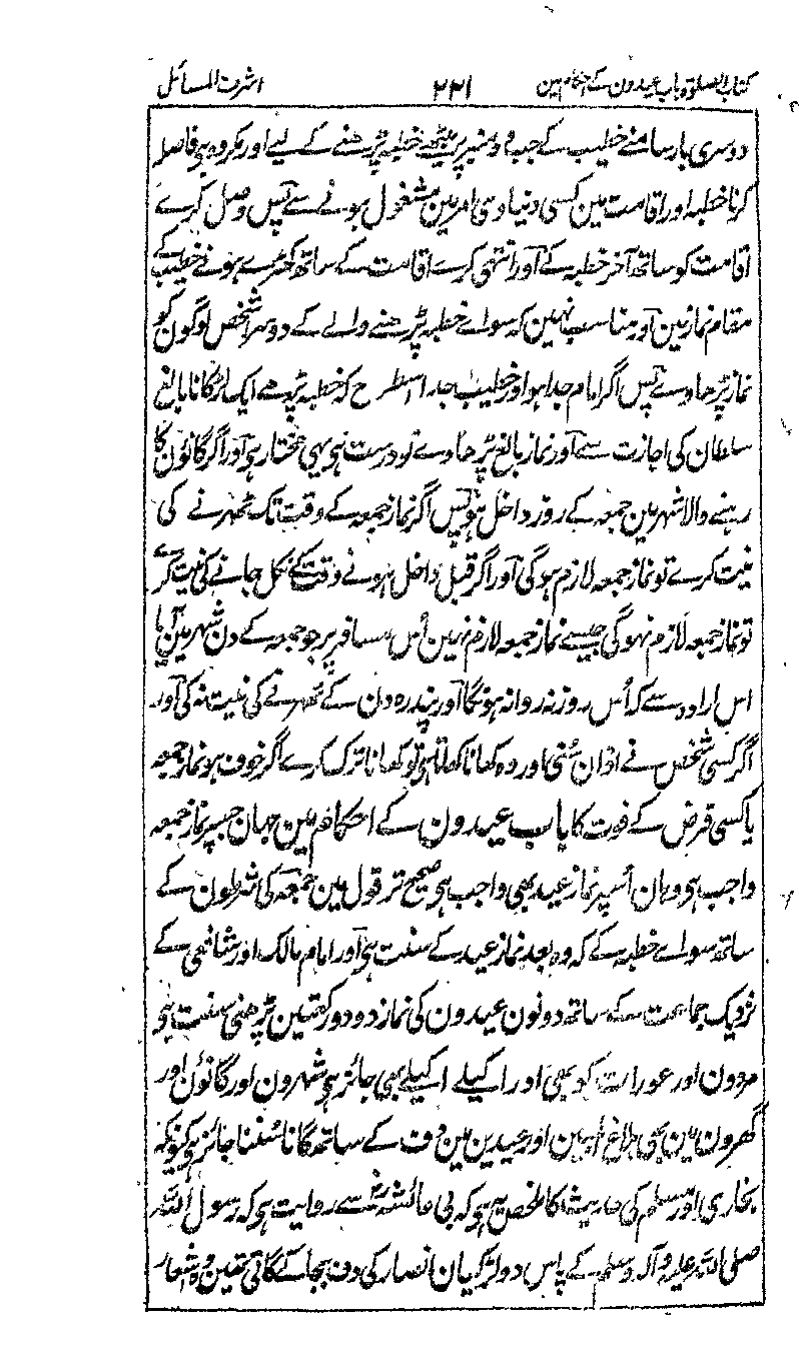 کتاب الصلوۃ باب عیدون کے احکام مین ۲۲۱ اشرف المسائل
دوسری بار سامنے خطیب کے جب وہ منبر پر بیٹھے خطبہ پڑھنے کے لیے اور مکروہ ہی فاصلہ
کرنا خطبہ اور اقامت مین کسی دنیاوی امر مین مشغول ہونے سے پس وصل کرے
اقامت کو ساتھ آخر خطبہ کے اور انتہی کرے اقامت کے ساتھ کھڑے ہونے خطیب کے
مقام نماز مین اور مناسب نہین کہ سواے خطبہ پڑھنے والے کے دوسرا شخص لوگون کو
نماز پڑھاوے پس اگر امام جدا ہو اور خطیب جدا اسطرح کہ خطبہ پڑھے ایک لڑکا نا بالغ
سلطان کی اجازت سے اور نماز بالغ پڑھاوے تو درست ہی یہی مختار ہی اور اگر گانؤن کا
رہنے والا شہر مین جمعہ کے روز داخل ہو پس اگر نماز جمعہ کے وقت تک ٹھہرنے کی
نیت کرے تو نماز جمعہ لازم ہوگی اور اگر قبل داخل ہونے وقت کے نکل جانے کی نیت کرے
تو نماز جمعہ لازم نہوگی جیسے نماز جمعہ لازم نہین اُس مسافر پر جو جمعہ کے دن شہر مین آیا
اس ارادہ سے کہ اُس روز نہ روانہ ہونگا اور پندرہ دن کے ٹھہرنے کی نیت نہ کی اور
اگر کسی شخص نے اذان سُنی اور وہ کھانا کھاتا ہی تو کھانا ترک کرے اگر خوف ہو نماز جمعہ
یا کسی فرض کے فوت کا باب عیدون کے احکام مین جہان جسپر نماز جمعہ
واجب ہی وہان اُسپر نماز عید بھی واجب ہی صحیح تر قول مین جمعہ کی شرطون کے
ساتھ سواے خطبہ کے کہ وہ بعد نماز عید کے سنت ہی اور امام مالک اور شافعی کے
نزدیک جماعت کے ساتھ دونون عیدون کی نماز دو دو رکعتین پڑھنی سنت ہی
مردون اور عورات کو بھی اور اکیلے اکیلے بھی جائز ہی شہرون اور گانؤن اور
گھرون مین بھی اور عیدین مین دف کے ساتھ گانا سُننا جائز ہی کیونکہ
بخاری اور مسلم کی حدیث کا ملخص یہ ہی کہ بی بی عائشہ رض سے روایت ہی کہ رسول اللہ
صلی اللہ علیہ وآلہ وسلم کے پاس دو لڑکیان انصار کی دف بجا کے گاتی تھین وہ اشعار